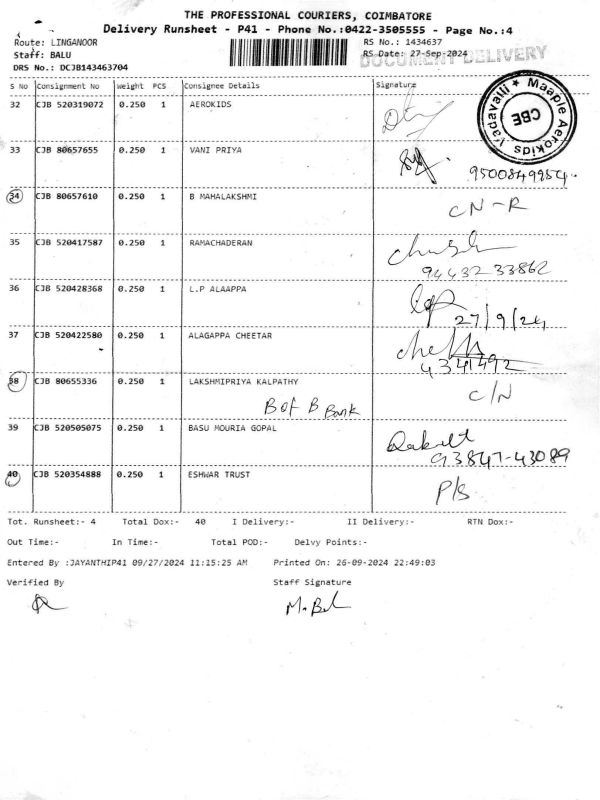 THE PROFESSIONAL COURIERS, COIMBATORE
Delivery Runsheet - P41 - Phone No.:0422-3505555 - Page No.:4
Route: LINGANOOR RS No.: 1434637
Staff: BALU RS Date: 27-Sep-2024 DOCUMENT DELIVERY
DRS No.: DCJB143463704
S No Consignment No Weight PCS Consignee Details Signature
32 CJB 520319072 0.250 1 AEROKIDS
Maaple Aerokids Vadavalli ★ CBE
33 CJB 80657655 0.250 1 VANI PRIYA
9500849954
34 CJB 80657610 0.250 1 B MAHALAKSHMI CN-R
35 CJB 520417587 0.250 1 RAMACHADERAN
94432 33862
36 CJB 520428368 0.250 1 L.P ALAAPPA
27/9/24
37 CJB 520422580 0.250 1 ALAGAPPA CHEETAR
4341492
38 CJB 80655336 0.250 1 LAKSHMIPRIYA KALPATHY C/N
B of B Bank
39 CJB 520505075 0.250 1 BASU MOURIA GOPAL
93847-43089
40 CJB 520354888 0.250 1 ESHWAR TRUST P/S
Tot. Runsheet:- 4 Total Dox:- 40 I Delivery:- II Delivery:- RTN Dox:-
Out Time:- In Time:- Total POD:- Delvy Points:-
Entered By :JAYANTHIP41 09/27/2024 11:15:25 AM Printed On: 26-09-2024 22:49:03
Verified By Staff Signature